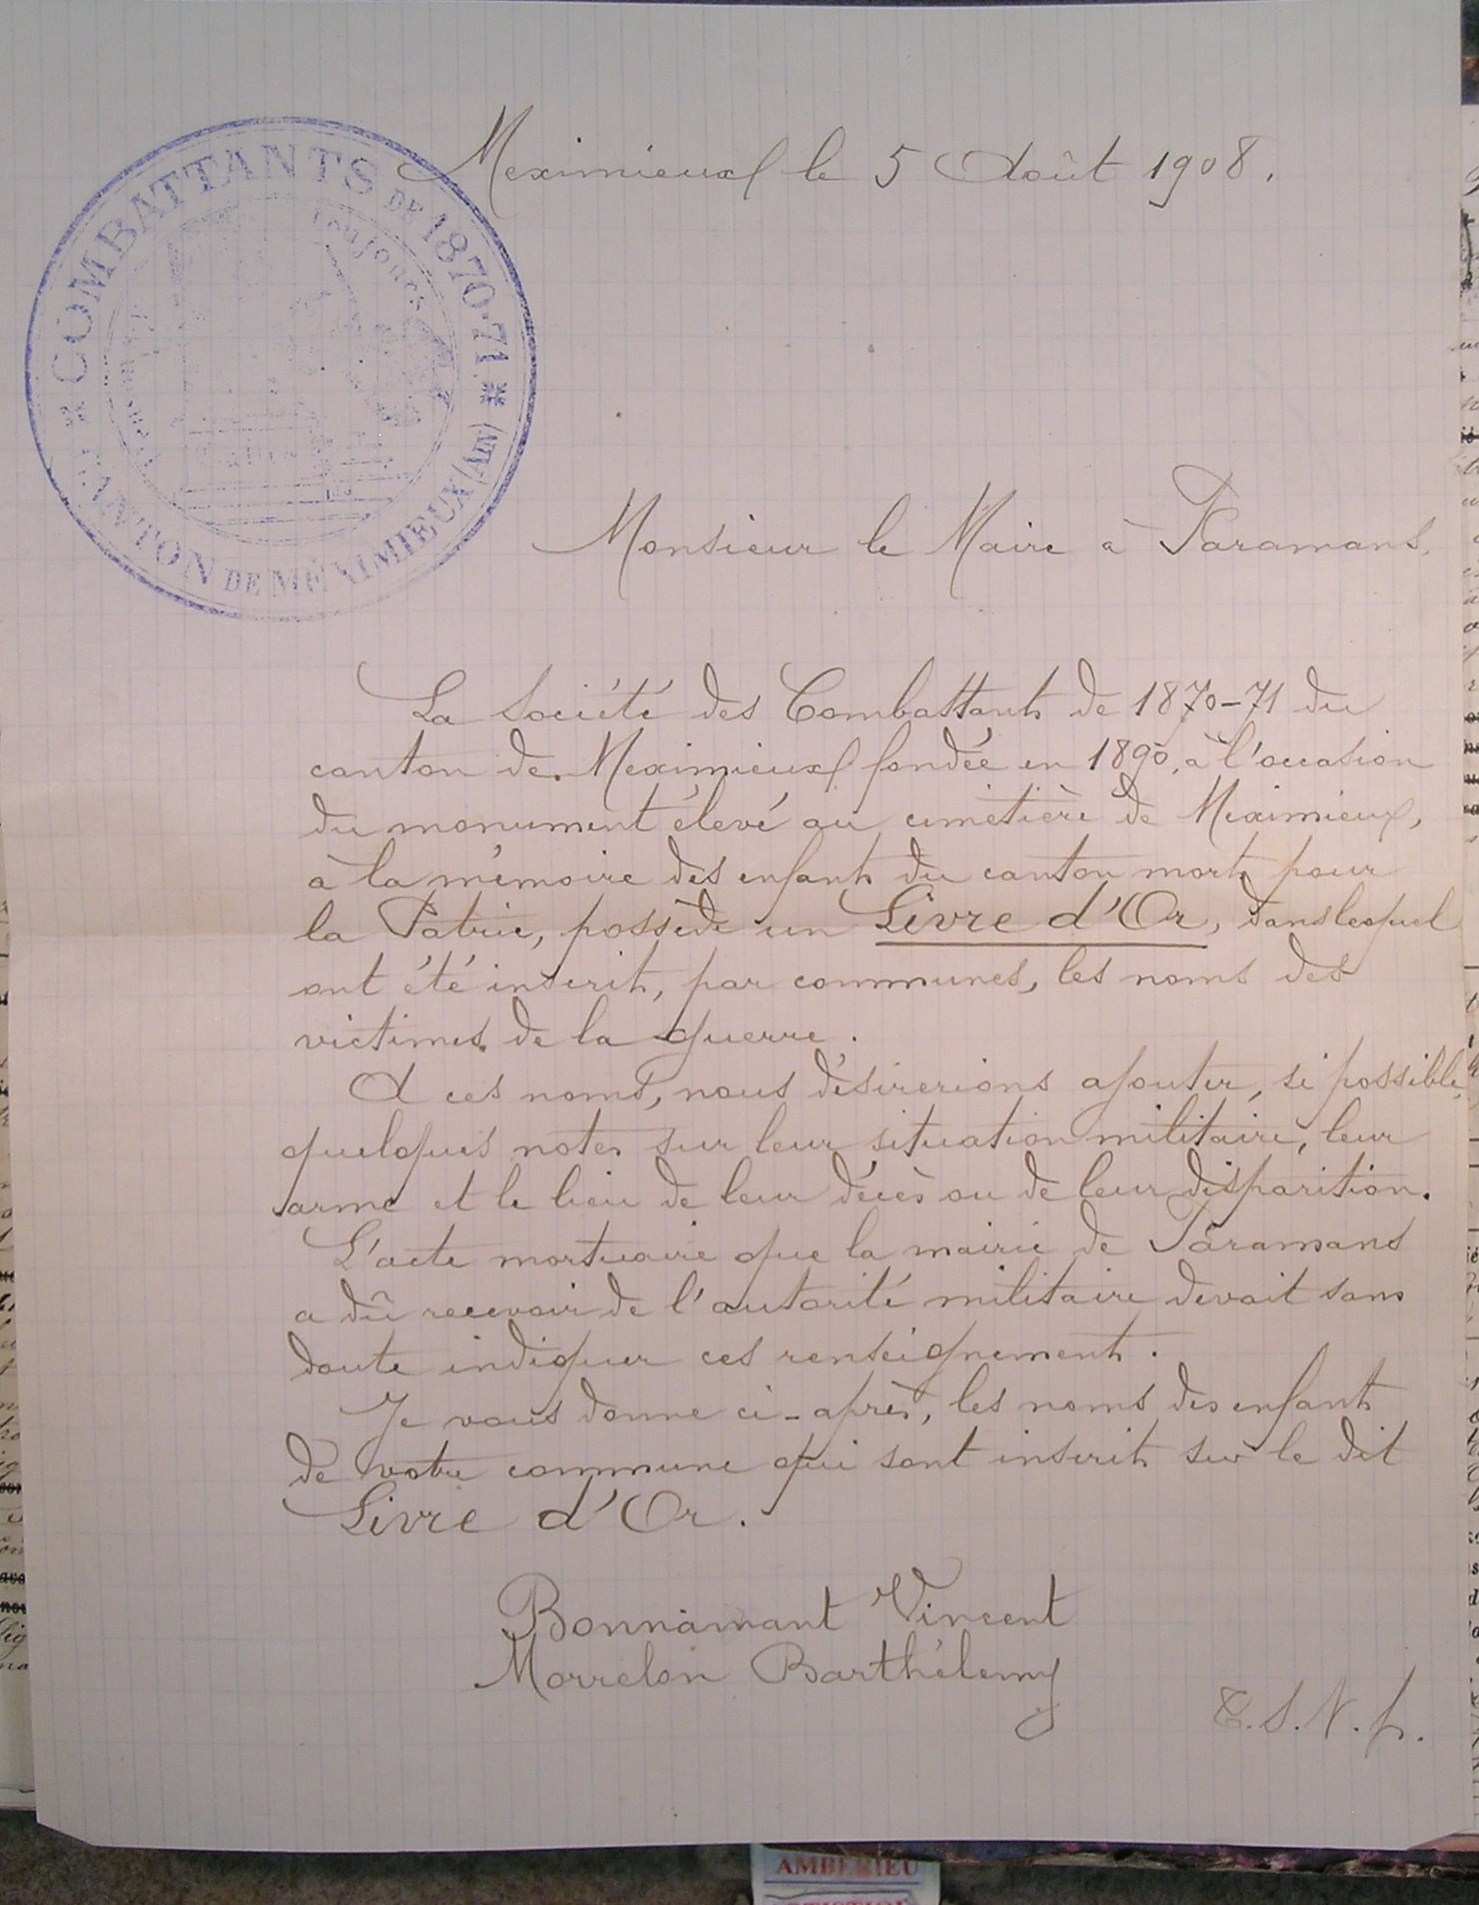 COMBATTANTS DE 1870-71
CANTON DE MEXIMIEUX (AIN)
Toujours
Meximieux le 5 Août 1908.
Monsieur le Maire à Faramans.
La Société des Combattants de 1870-71 du
canton de Meximieux fondée en 1890, à l'occasion
du monument élevé au cimetière de Meximieux,
à la mémoire des enfants du canton morts pour
la Patrie, possède un Livre d'Or, dans lequel
ont été inscrits, par communes, les noms des
victimes de la guerre.
A ces noms, nous désirerions ajouter, si possible,
quelques notes sur leur situation militaire, leur
arme et le lieu de leur décès ou de leur disparition.
L'acte mortuaire que la mairie de Faramans
a dû recevoir de l'autorité militaire devait sans
doute indiquer ces renseignements.
Je vous donne ci-après, les noms des enfants
de votre commune qui sont inscrits sur le dit
Livre d'Or.
Bonnamant Vincent
Morrelon Barthélemy
T.S.V.p.
AMBERIEU